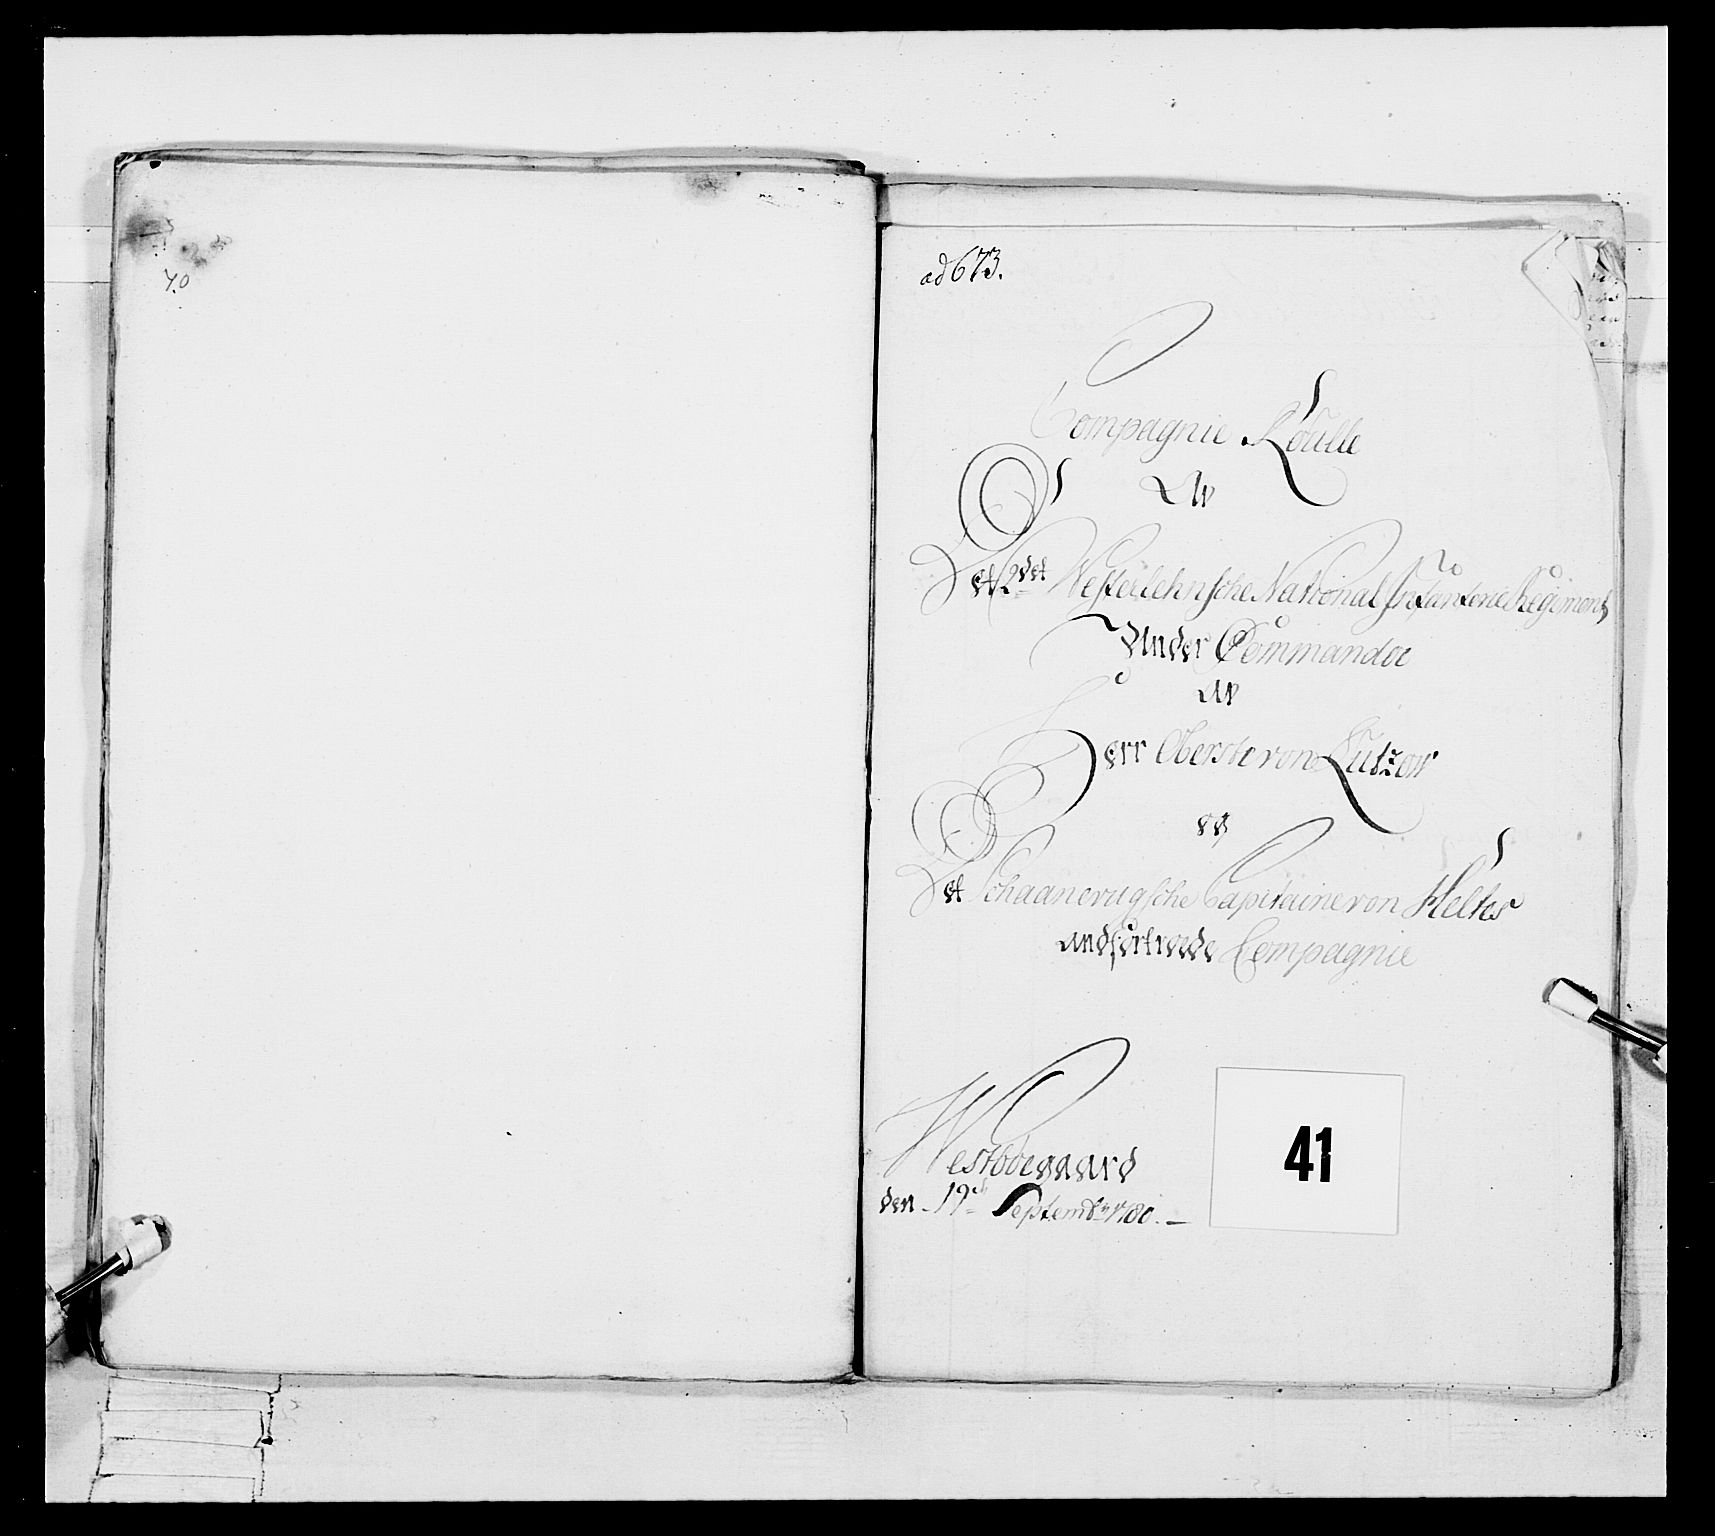 40
ad 673.
Compagnie Roulle
Av
Det 2det Vesterlehnsche National Infanterie Regiment
Under Commandoe
av
Herr Oberste von Lützow
og
Det Schaanevigsche Capitaine von Heltes
andfortroede Compagnie
Westbøegaard
den 19de Septembr 1780. —
41